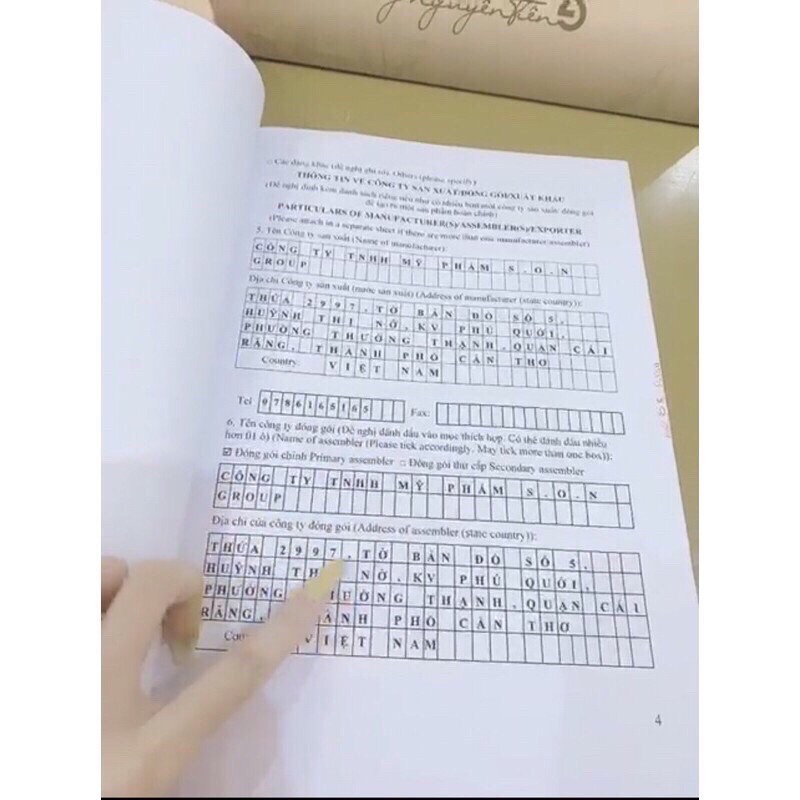 NguyênTiên
- Các dạng khác (đề nghị ghi rõ). Others (please specify)
THÔNG TIN VỀ CÔNG TY SẢN XUẤT/ĐÓNG GÓI/XUẤT KHẨU
(Đề nghị đính kèm danh sách riêng nếu như có nhiều hơn một công ty sản xuất/ đóng gói
để tạo ra một sản phẩm hoàn chỉnh)
PARTICULARS OF MANUFACTURER(S)/ASSEMBLER(S)/EXPORTER
(Please attach in a separate sheet if there are more than one manufacturer/assembler)
5. Tên Công ty sản xuất (Name of manufacturer):
CÔNG TY TNHH MỸ PHẨM S.O.N
GROUP
Địa chỉ Công ty sản xuất (nước sản xuất) (Address of manufacturer (state country)):
THỬA 2997, TỜ BẢN ĐỒ SỐ 5,
HUỲNH THỊ NỞ, KV PHÚ QUỚI,
PHƯỜNG THƯỜNG THẠNH, QUẬN CÁI
RĂNG, THÀNH PHỐ CẦN THƠ
Country: VIỆT NAM
Tel 0786165165 Fax:
6. Tên công ty đóng gói (Đề nghị đánh dấu vào mục thích hợp. Có thể đánh dấu nhiều
hơn 01 ô) (Name of assembler (Please tick accordingly. May tick more than one box)):
☑ Đóng gói chính Primary assembler □ Đóng gói thứ cấp Secondary assembler
CÔNG TY TNHH MỸ PHẨM S.O.N
GROUP
Địa chỉ của công ty đóng gói (Address of assembler (state country)):
THỬA 2997, TỜ BẢN ĐỒ SỐ 5,
HUỲNH TH NỞ, KV PHÚ QUỚI,
PHƯỜNG ƯỜNG THẠNH, QUẬN CÁI
RĂNG, ÀNH PHỐ CẦN THƠ
Cou VIỆT NAM
4